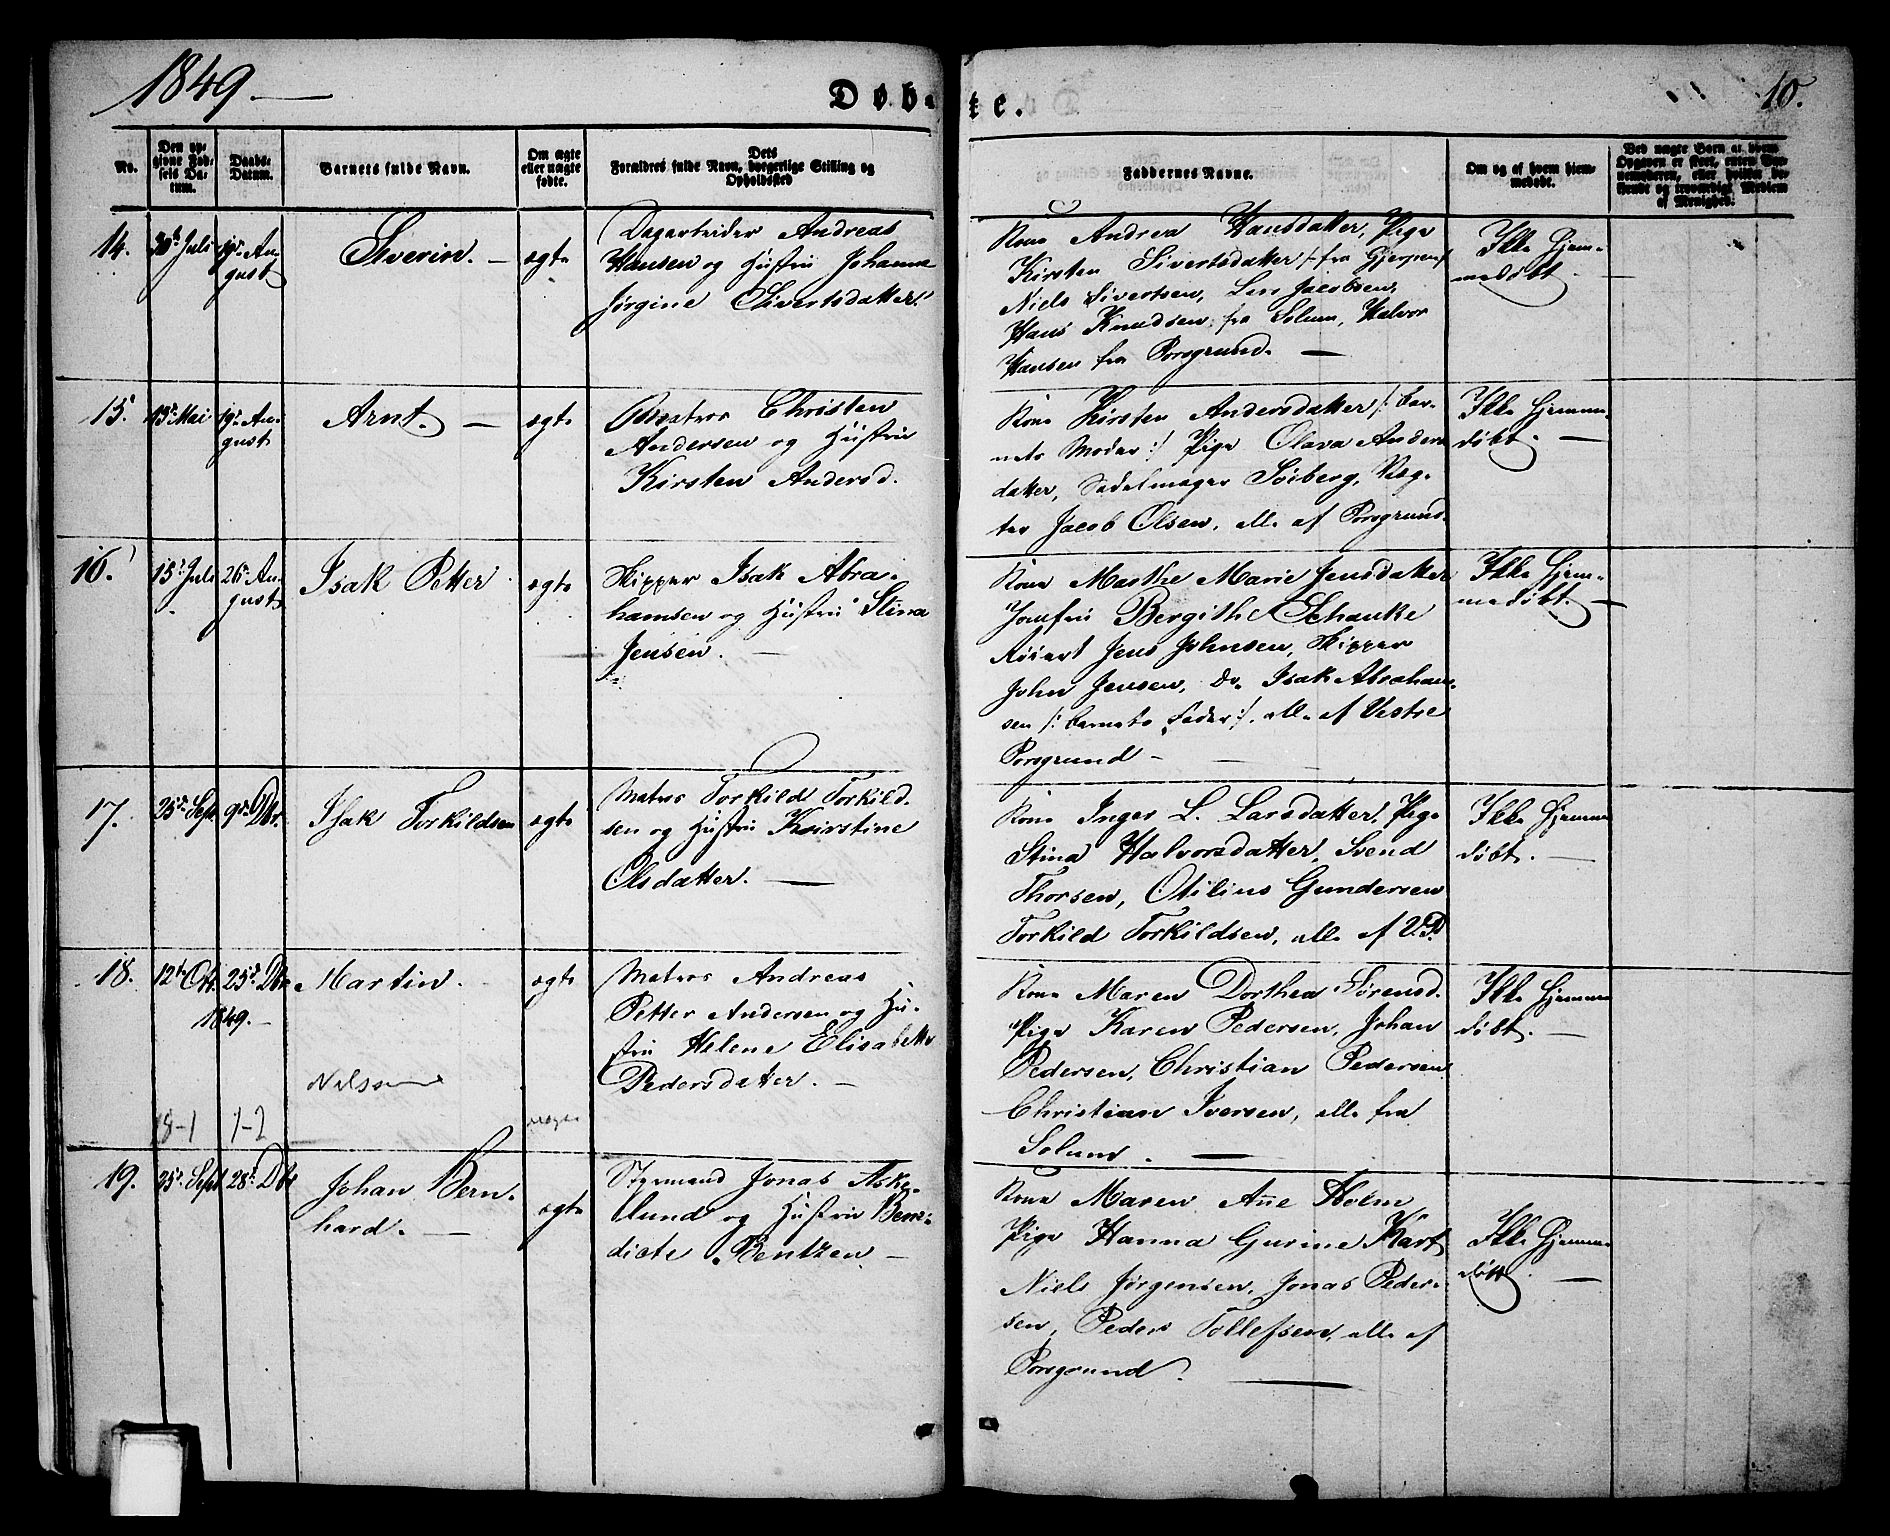 1849.
Døbte.
10.
No.
Den opgivne Fødsels Datum.
Daabs-Datum.
Barnets fulde Navn.
Om ægte eller uægte fødte.
Dets Forældres fulde Navn, borgerlige Stilling og Opholdssted
Faddernes Navne.
Om og af hvem hjemmedøbt.
Ved uægte Børn af hvem Opgaven er skeet, enten Barnemoderen, eller hvilke bekjendt og troværdigt Medlem af Menighed.
14.
30te Juli
19de August
Siverin. —
ægte
Dagarbeider Andreas
Hansen og Hustru Johanne
Jørgine Sivertsdatter.
Kone Andrea Hansdatter, Pige
Kirsten Sivertsdatter /: fra Gjerpen :/
Niels Sivertsen, Lars Jacobsen,
Hans Knudsen, fra Solum, Halvor
Hansen fra Porsgrund. —
Ikke Hjem-
medøbt. —
15.
13de Mai
19de August
Arnt. —
ægte
Matros Christen
Andersen og Hustru
Kirsten Andersd.
Kone Kirsten Andersdatter /: bar-
nets Moder :/ Pige Olava Anders
datter, Sadelmager Söiberg, Væg-
ter Jacob Olsen, alle af Porsgrund.
Ikke Hjemme
døbt. —
16.
15de Juli
26de August
Isak Petter
ægte
Skipper Isak Abra-
hamsen og Hustru Stina
Jensen. —
Kone Marthe Marie Jensdatter
Jomfru Bergithe Schanke
Jens Johnsen, Skipper
John Jensen, Do. Isak Abraham-
sen /: barnets Fader :/, alle af Vestre
Porsgrund —
Ikke Hjem-
medøbt. —
17.
25de Sept.
9de Dbr.
Isak Torkildsen
ægte
Matros Torkild Torkild-
sen og Hustru Kirstine
Olsdatter. —
Kone Inger L. Larsdatter, Pige
Stina Halvorsdatter, Svend
Thorsen, Otilius Gundersen
Torkild Torkildsen, alle af V.P.
Ikke Hjemme
døbt. —
18.
12te Oct.
25de Dbr.
1849.
Martin.
ægte
Matros Andreas
Petter Andersen og Hu-
stru Helene Elisabeth
Pedersdatter. —
Kone Maren Dorthea Sørensd.
Pige Karen Pedersen, Johan
Pedersen, Christian Pedersen
Christian Iversen, alle fra
Solum. —
Ikke Hjemme
døbt. —
8-1
1-2
19.
25de Sept.
28de Dbr
Johan Bern-
hard. —
ægte
Styrmand Jonas Aske-
lund og Hustru Bene-
dicte Bentzen —
Kone Maren Ane Holm
Pige Hanna Gurine Kart
Niels Jørgensen, Jonas Peder-
sen, Peder Tollefsen, alle af
Porsgrund. —
Ikke Hjemme
døbt. —